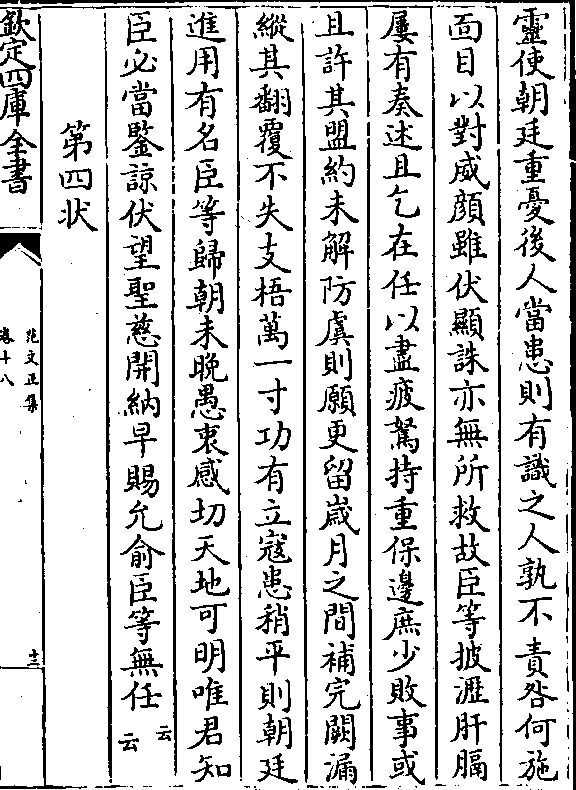 靈使朝廷重憂後人當患則有識之人孰不責咎何施
面目以對威顔雖伏顯誅亦無所救故臣等披瀝肝膈
屢有奏述且乞在任以盡疲駑持重保邊庶少敗事或
且許其盟約未解防虞則願更留歲月之間補完闕漏
縱其翻覆不失支梧萬一寸功有立寇患稍平則朝廷
進用有名臣等歸朝未晩愚衷感切天地可明唯君知
臣必當鑒諒伏望聖慈開納早賜允俞臣等無任云云
第四狀
欽定四庫全書
范文正集
卷十八
十三